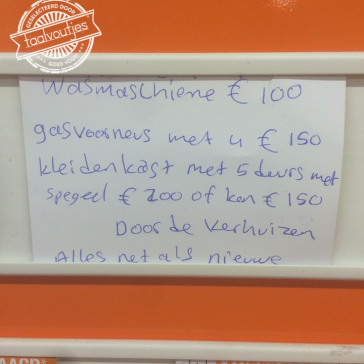 GESELECTEERD DOOR
taalvoutjes
GOED VOUT
Wasmaschiene € 100
gasvoorneus met u € 150
kleidenkast met 5 deurs met
spegeel € 200 of kan € 150
Door de verhuizen
Alles net als nieuwe